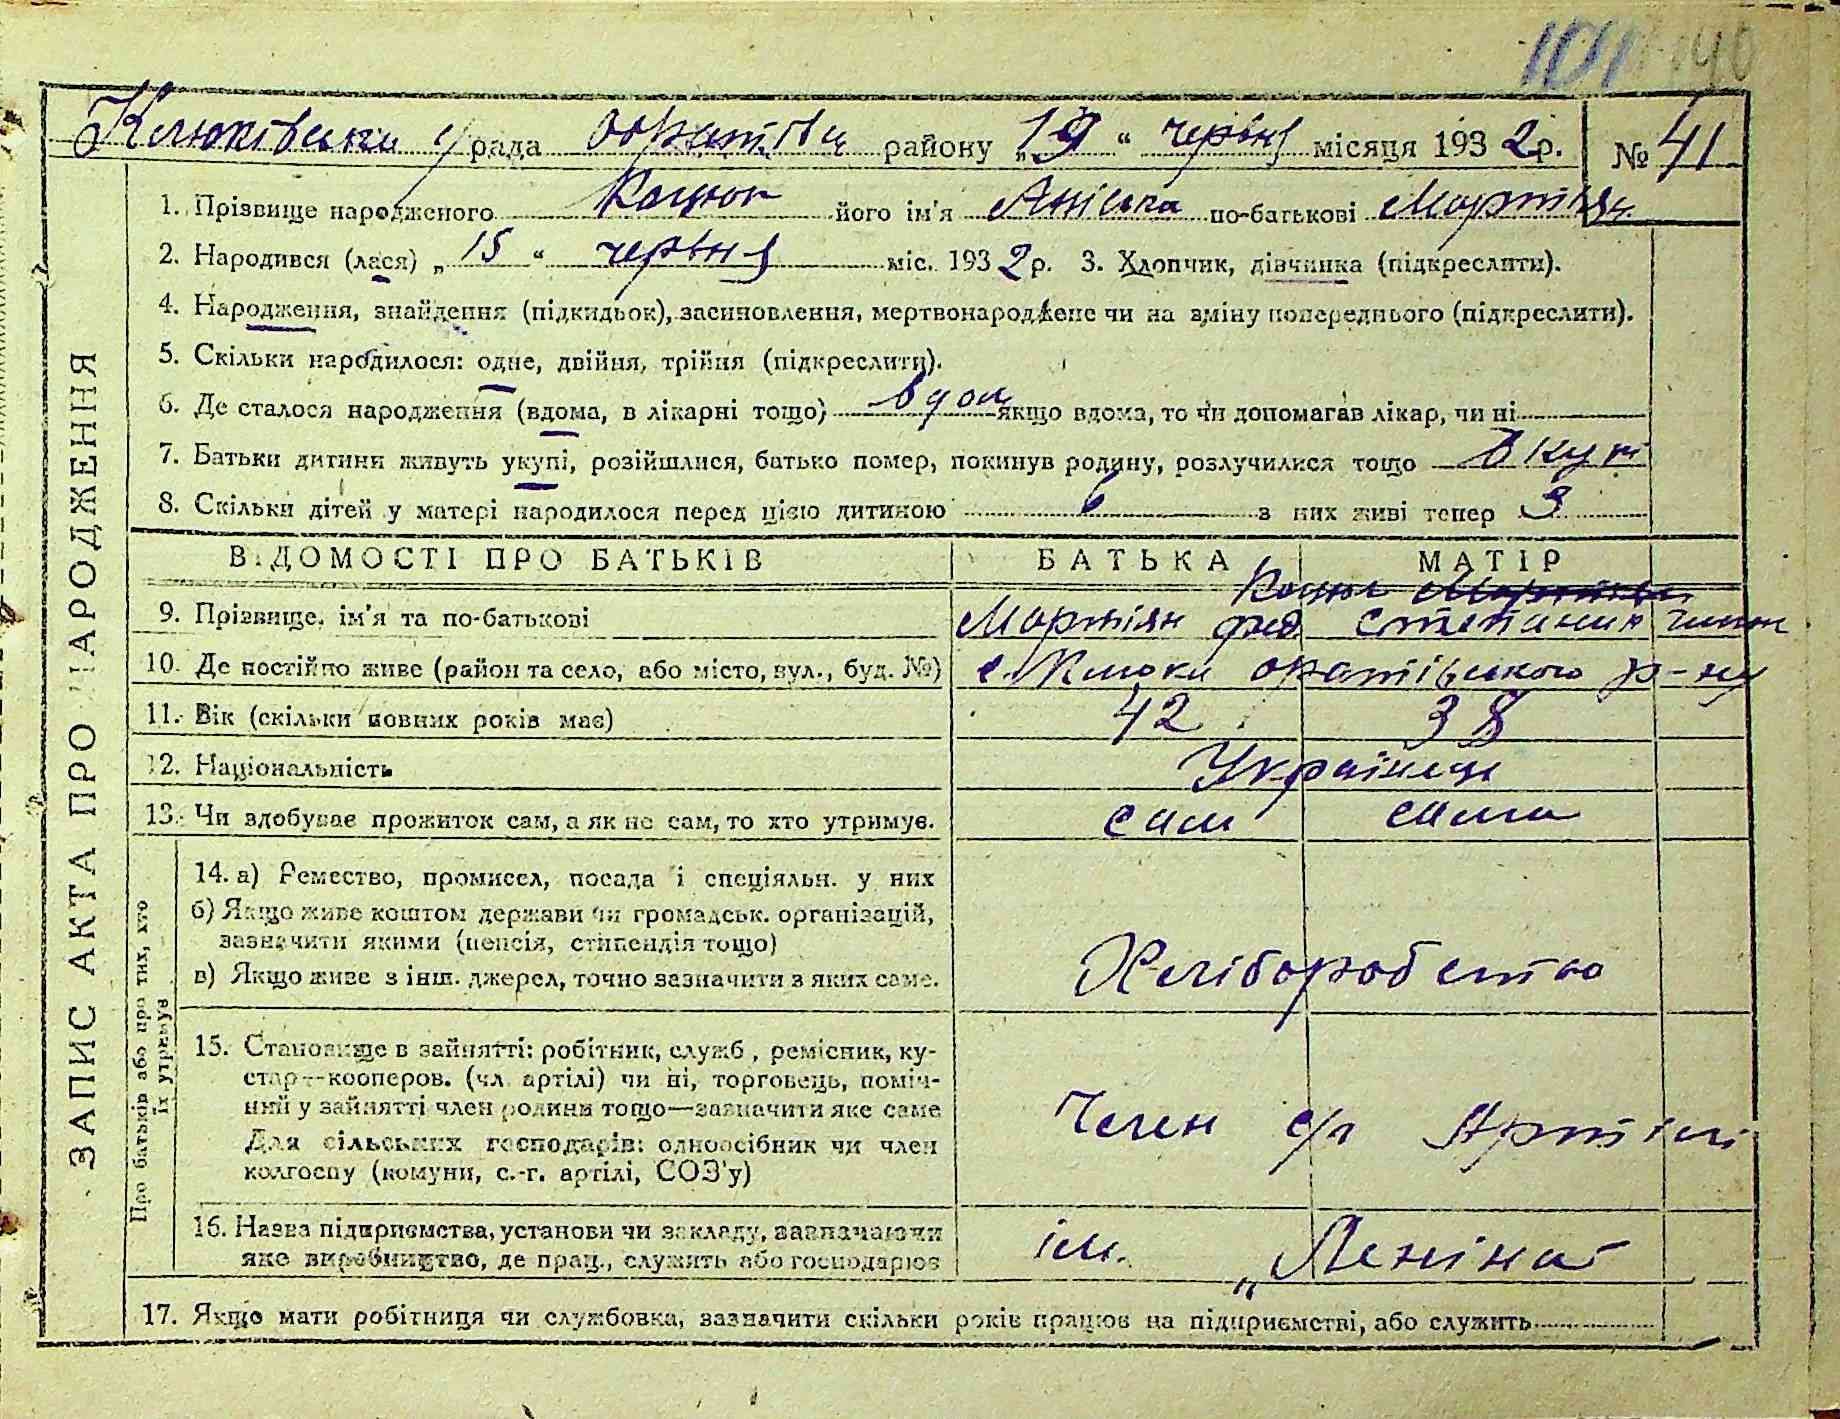 101 140
Клюківська с/рада Оратівськ району „19“ червня місяця 1932 р. № 41
ЗАПИС АКТА ПРО НАРОДЖЕННЯ
1. Прізвище народженого Коцюк його ім'я Аніська по-батькові Мартіян.
2. Народився (лася) „15“ червня міс. 1932 р. 3. Хлопчик, дівчинка (підкреслити).
4. Народження, знайдення (підкидьок), засиновлення, мертвонароджене чи на зміну попереднього (підкреслити).
5. Скільки народилося: одне, двійня, трійня (підкреслити).
6. Де сталося народження (вдома, в лікарні тощо) вдом якщо вдома, то чи допомагав лікар, чи ні
7. Батьки дитини живуть укупі, розійшлися, батько помер, покинув родину, розлучилися тощо вкупі
8. Скільки дітей у матері народилося перед цією дитиною 6 з них живі тепер 3
ВІДОМОСТІ ПРО БАТЬКІВ БАТЬКА МАТІР
Коцюк
9. Прізвище, ім'я та по-батькові Мартіян Степанид
10. Де постійно живе (район та село, або місто, вул., буд. №) с. Клюки Оратівського р-ну
11. Вік (скільки повних років має) 42 38
12. Національність Українці
13. Чи здобуває прожиток сам, а як не сам, то хто утримує. сам сама
Про батьків або про тих, хто їх утримує
14. а) Ремество, промисел, посада і спеціяльн. у них
б) Якщо живе коштом держави чи громадськ. організацій,
зазначити якими (пенсія, стипендія тощо)
в) Якщо живе з інш. джерел, точно зазначити з яких саме. Хліборобство
15. Становище в зайнятті: робітник, служб., ремісник, ку-
стар—кооперов. (чл. артілі) чи ні, торговець, поміч-
ний у зайнятті член родини тощо—зазначити яке саме
Для сільських господарів: одноосібник чи член
колгоспу (комуни, с.-г. артілі, СОЗ'у) Член с/г Артілі
16. Назва підприємства, установи чи закладу, зазначаючи
яке виробництво, де прац., служить або господарює ім. „Леніна“
17. Якщо мати робітниця чи службовка, зазначити скільки років працює на підприємстві, або служить